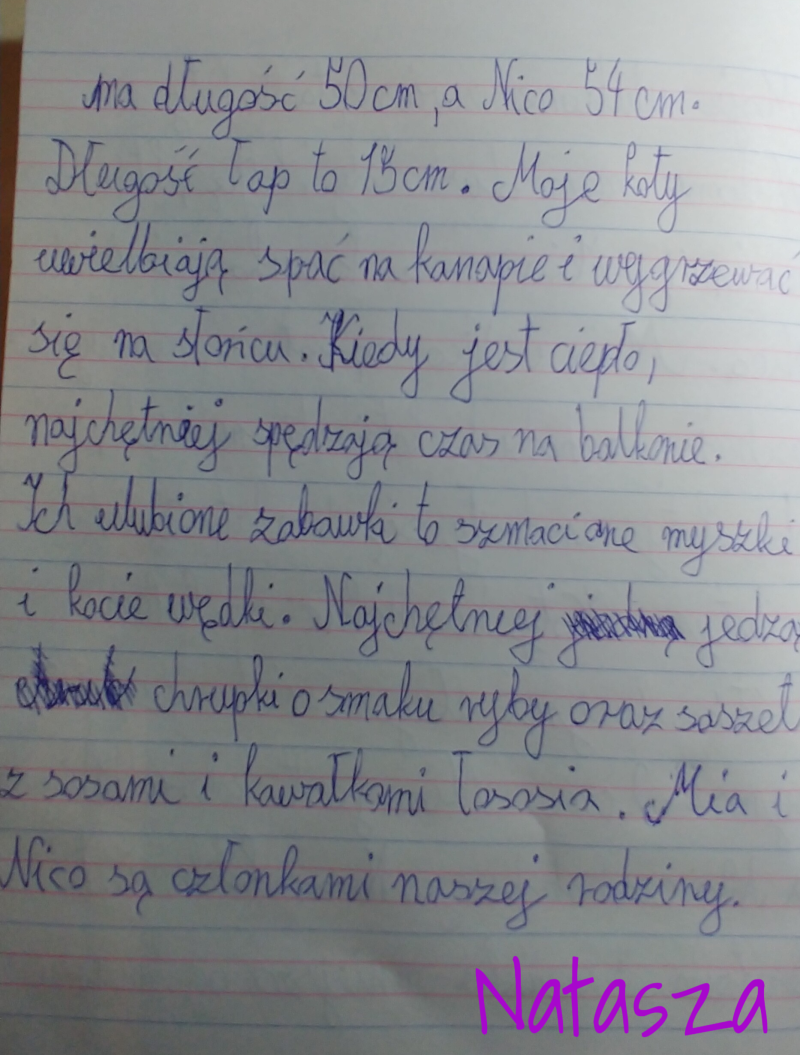 ma długość 50 cm, a Nico 54 cm.
Długość łap to 13 cm. Moje koty
uwielbiają spać na kanapie i wygrzewać
się na słońcu. Kiedy jest ciepło,
najchętniej spędzają czas na balkonie.
Ich ulubione zabawki to szmaciane myszki
i kocie wędki. Najchętniej jedzą
chrupki o smaku ryby oraz saszet
z sosami i kawałkami łososia. Mia i
Nico są członkami naszej rodziny.
Natasza